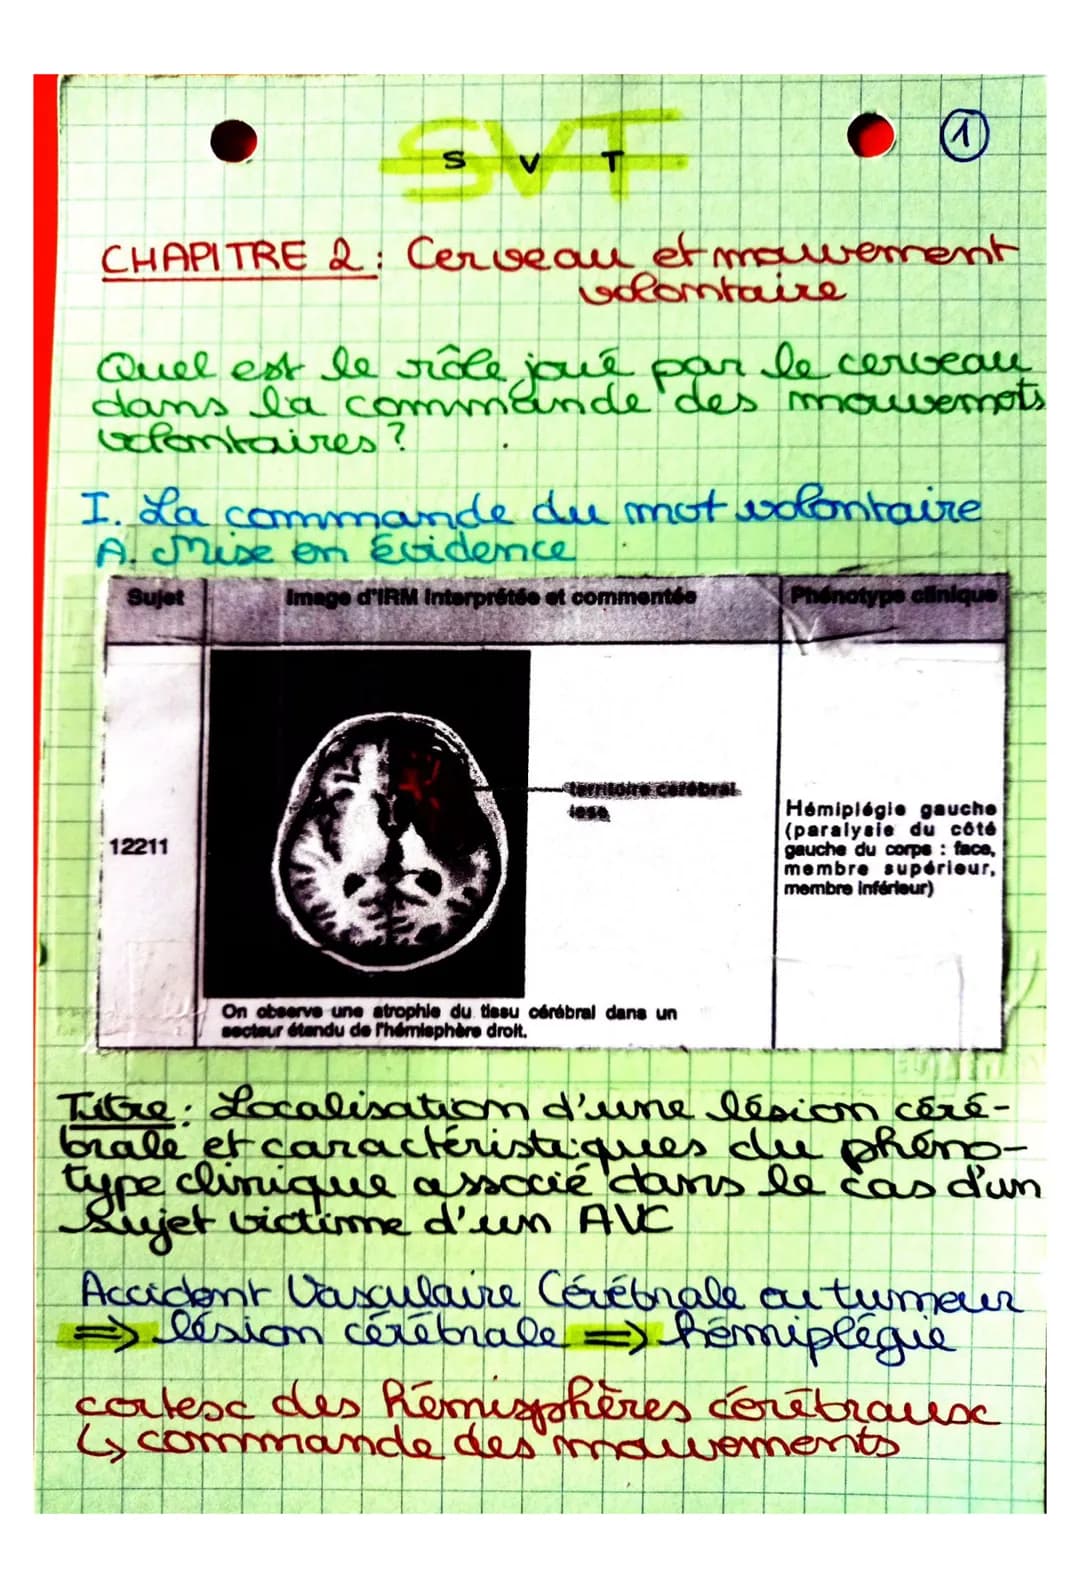 SVT
S V T
1
CHAPITRE 2 : Cerveau et mouvement
volontaire
Quel est le rôle joué par le cerveau
dans la commande des mouvemots
volontaires ?
I. La commande du mot volontaire
A. Mise en évidence
Sujet
Image d'IRM interprétée et commentée
Phénotype clinique
territoire cérébral
lésé
12211
Hémiplégie gauche
(paralysie du côté
gauche du corps : face,
membre supérieur,
membre inférieur)
On observe une atrophie du tissu cérébral dans un
secteur étendu de l'hémisphère droit.
Titre : Localisation d'une lésion céré-
brale et caractéristiques du phéno-
type clinique associé dans le cas d'un
Sujet victime d'un AVC
Accident Vasculaire Cérébrale ou tumeur
=> lésion cérébrale => hémiplégie
cortex des hémisphères cérébraux
↳ commande des mouvements